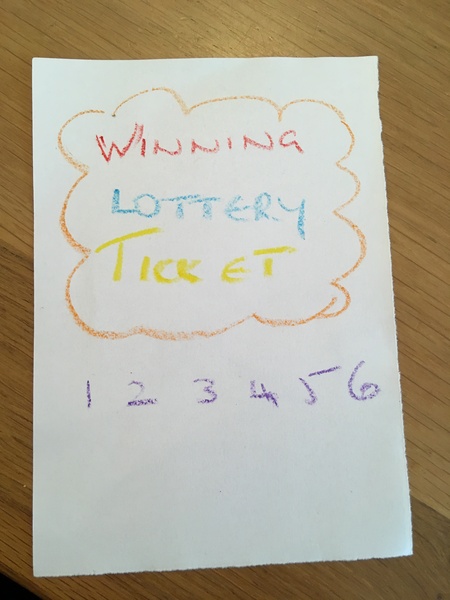 WINNING
LOTTERY
TICKET
1 2 3 4 5 6